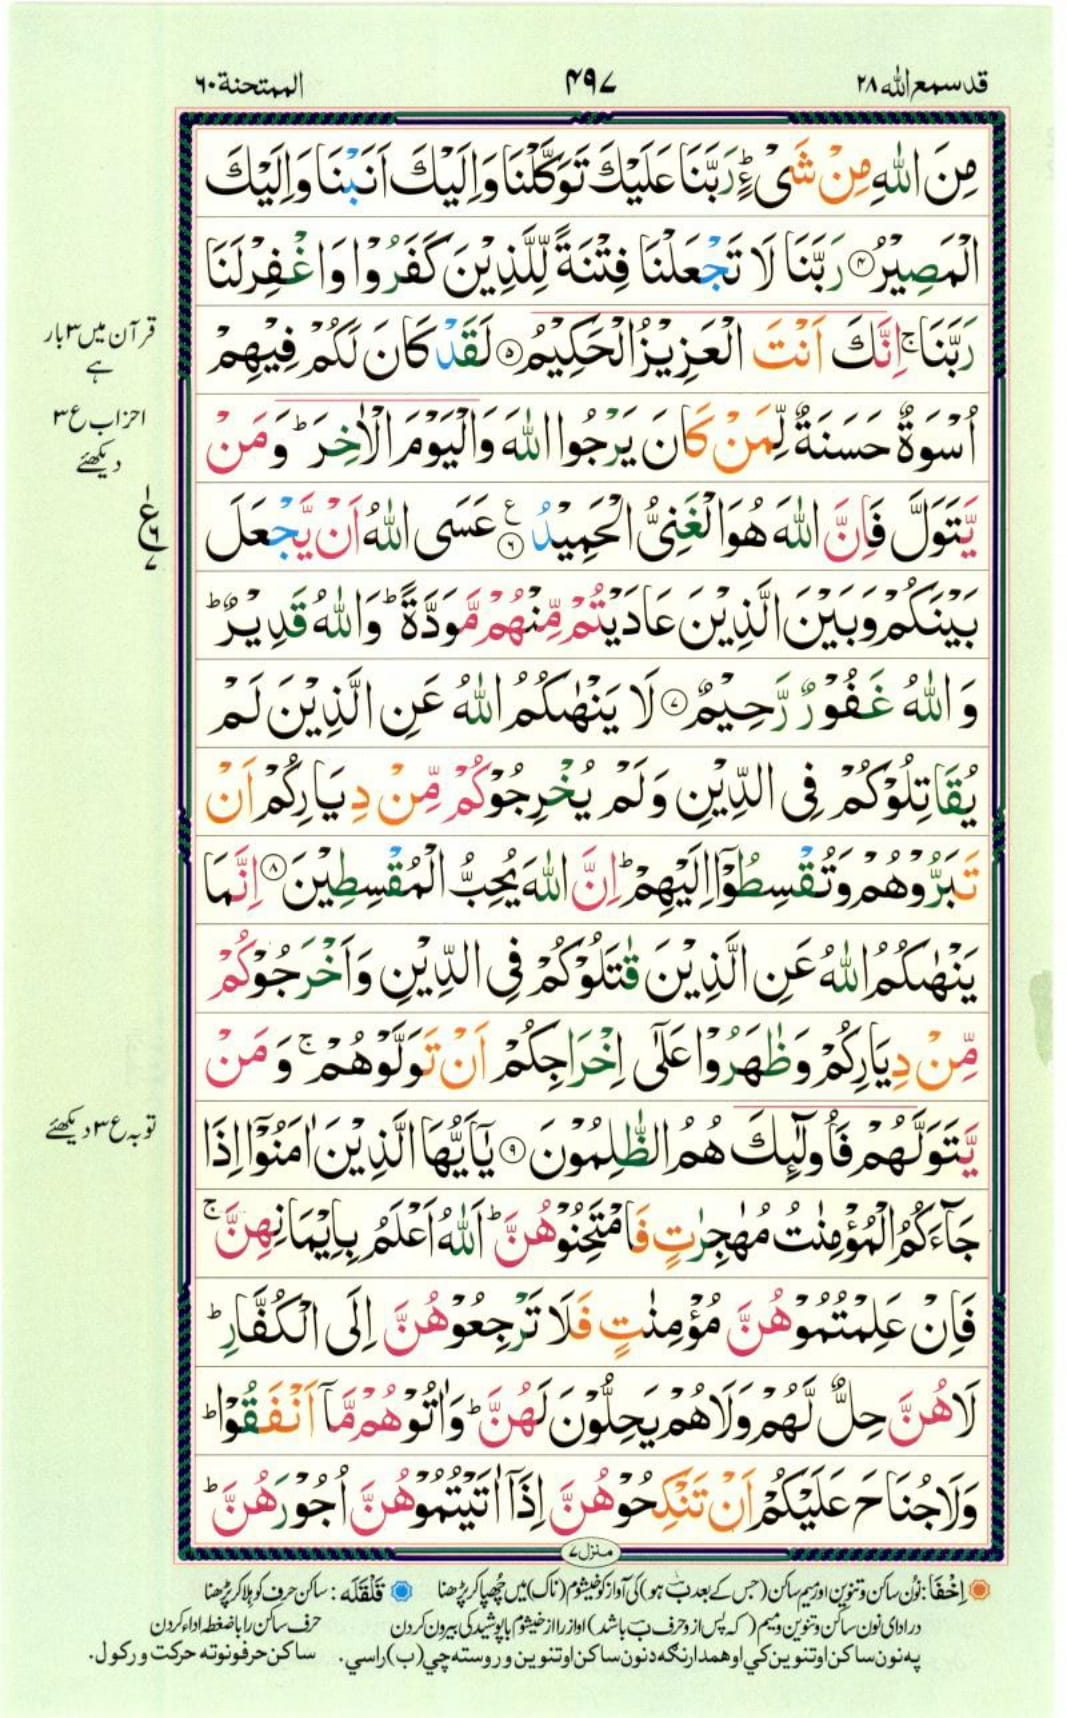 قد سمع الله ٢٨
۴۹۷
الممتحنة ٦٠
مِنَ اللّٰهِ مِنْ شَیْءٍ ؕ رَبَّنَا عَلَیْكَ تَوَكَّلْنَا وَاِلَیْكَ اَنَبْنَا وَاِلَیْكَ
الْمَصِیْرُ ﴿۴﴾ رَبَّنَا لَا تَجْعَلْنَا فِتْنَةً لِّلَّذِیْنَ كَفَرُوْا وَاغْفِرْلَنَا
رَبَّنَا ۚ اِنَّكَ اَنْتَ الْعَزِیْزُ الْحَكِیْمُ ﴿۵﴾ لَقَدْ كَانَ لَكُمْ فِیْهِمْ
قرآن میں ۳ بار
ہے
اُسْوَةٌ حَسَنَةٌ لِّمَنْ كَانَ یَرْجُوا اللّٰهَ وَالْیَوْمَ الْاٰخِرَ ؕ وَمَنْ
احزاب ع ۳
دیکھئے
یَّتَوَلَّ فَاِنَّ اللّٰهَ هُوَ الْغَنِیُّ الْحَمِیْدُ ﴿۶﴾ ع عَسَی اللّٰهُ اَنْ یَّجْعَلَ
ع
٦
٧
بَیْنَكُمْ وَبَیْنَ الَّذِیْنَ عَادَیْتُمْ مِّنْهُمْ مَّوَدَّةً ؕ وَاللّٰهُ قَدِیْرٌ ؕ
وَاللّٰهُ غَفُوْرٌ رَّحِیْمٌ ﴿۷﴾ لَا یَنْهٰىكُمُ اللّٰهُ عَنِ الَّذِیْنَ لَمْ
یُقَاتِلُوْكُمْ فِی الدِّیْنِ وَلَمْ یُخْرِجُوْكُمْ مِّنْ دِیَارِكُمْ اَنْ
تَبَرُّوْهُمْ وَتُقْسِطُوْۤا اِلَیْهِمْ ؕ اِنَّ اللّٰهَ یُحِبُّ الْمُقْسِطِیْنَ ﴿۸﴾ اِنَّمَا
یَنْهٰىكُمُ اللّٰهُ عَنِ الَّذِیْنَ قٰتَلُوْكُمْ فِی الدِّیْنِ وَاَخْرَجُوْكُمْ
مِّنْ دِیَارِكُمْ وَظٰهَرُوْا عَلٰۤی اِخْرَاجِكُمْ اَنْ تَوَلَّوْهُمْ ۚ وَمَنْ
یَّتَوَلَّهُمْ فَاُولٰٓئِكَ هُمُ الظّٰلِمُوْنَ ﴿۹﴾ یٰۤاَیُّهَا الَّذِیْنَ اٰمَنُوْۤا اِذَا
توبہ ع ۳ دیکھئے
جَآءَكُمُ الْمُؤْمِنٰتُ مُهٰجِرٰتٍ فَامْتَحِنُوْهُنَّ ؕ اَللّٰهُ اَعْلَمُ بِاِیْمَانِهِنَّ ۚ
فَاِنْ عَلِمْتُمُوْهُنَّ مُؤْمِنٰتٍ فَلَا تَرْجِعُوْهُنَّ اِلَی الْكُفَّارِ ؕ
لَا هُنَّ حِلٌّ لَّهُمْ وَلَا هُمْ یَحِلُّوْنَ لَهُنَّ ؕ وَاٰتُوْهُمْ مَّاۤ اَنْفَقُوْا ؕ
وَلَا جُنَاحَ عَلَیْكُمْ اَنْ تَنْكِحُوْهُنَّ اِذَاۤ اٰتَیْتُمُوْهُنَّ اُجُوْرَهُنَّ ؕ
منزل ۷
اِخْفَا: نُون ساکن و تنوین اور میم ساکن (جس کے بعد ب ہو) کی آواز کو خیشوم (ناک) میں چُھپا کر پڑھنا
قَلْقَلَه: ساکن حرف کو ہلا کر پڑھنا
در ادای نون ساکن و تنوین و میم (که پس از و حرف ب باشد) اواز را از خیشوم با پوشیدگی بیرون کردن
حرف ساکن را با ضغطه اداء کردن
په نون ساکن او تنوین کي او همدارنګه د نون ساکن او تنوین وروسته چي (ب) راسي.
ساکن حرفونو ته حرکت ورکول.